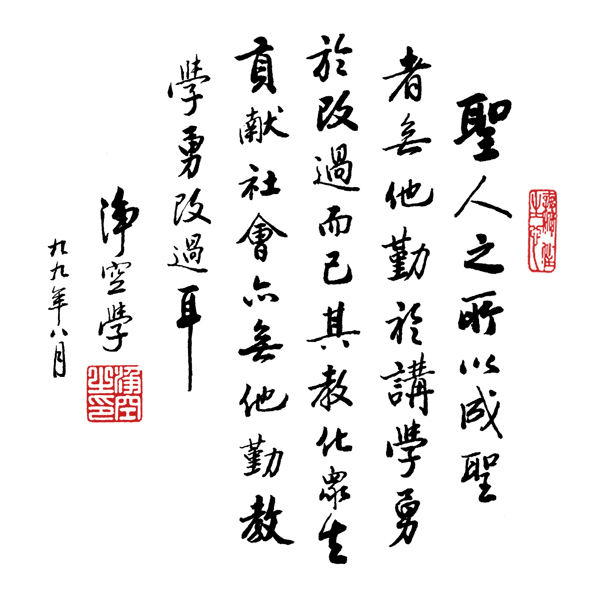 聖人之所以成聖
者無他勤於講學勇
於改過而已其教化眾生
貢献社會亦無他勤教
學勇改過耳
淨空學
九九年八月
淨空
之印